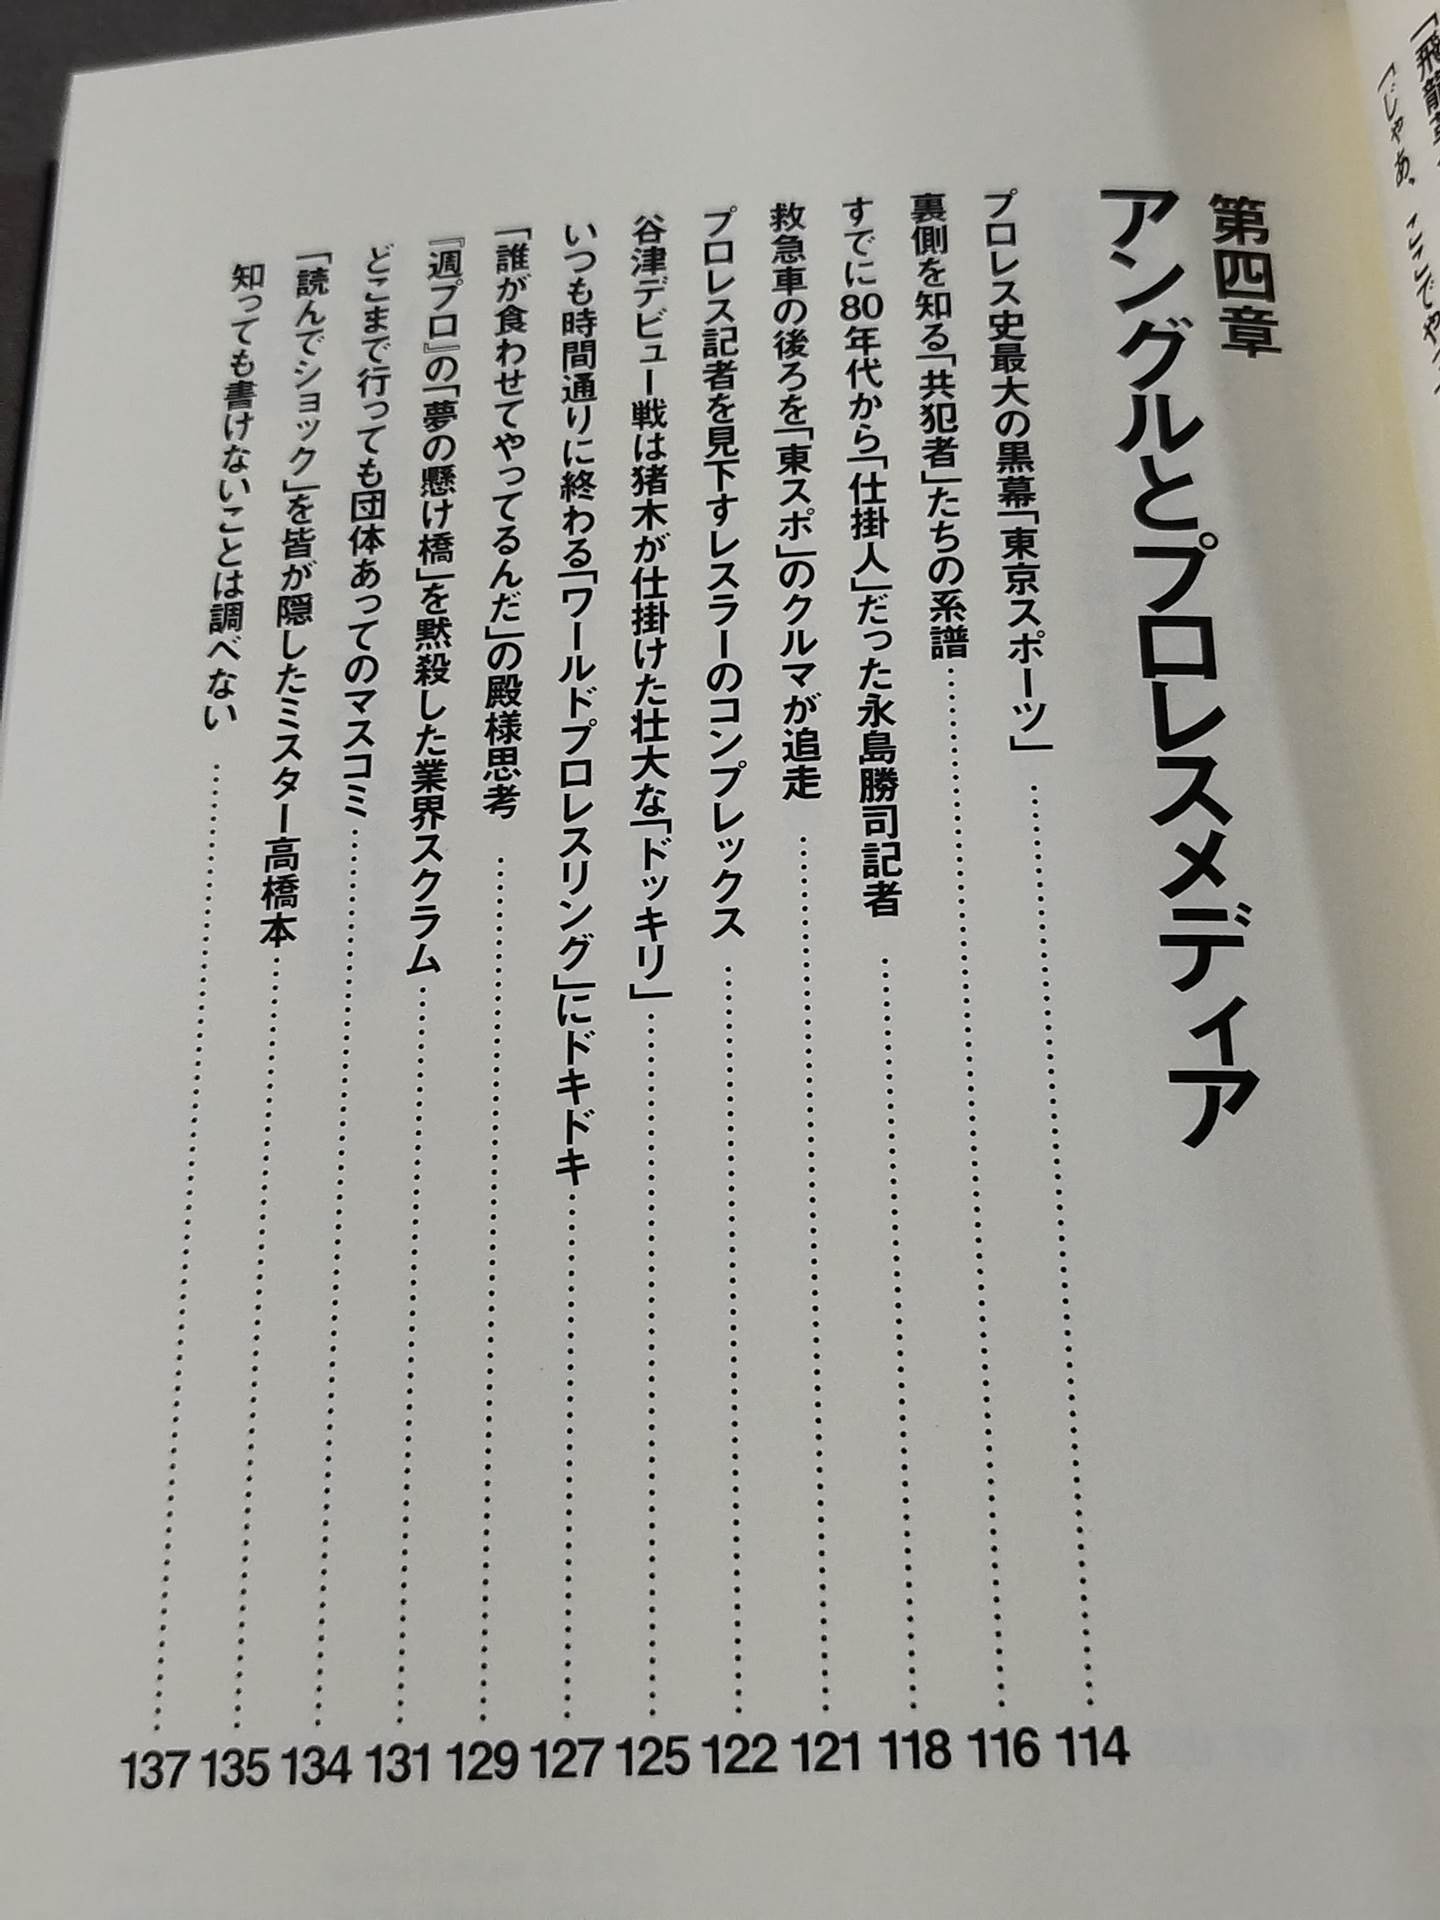 「飛龍革
「じゃあ、ここでやっ
第四章
アングルとプロレスメディア
プロレス史最大の黒幕「東京スポーツ」……114
裏側を知る「共犯者」たちの系譜……116
すでに80年代から「仕掛人」だった永島勝司記者……118
救急車の後ろを「東スポ」のクルマが追走……121
プロレス記者を見下すレスラーのコンプレックス……122
谷津デビュー戦は猪木が仕掛けた壮大な「ドッキリ」……125
いつも時間通りに終わる「ワールドプロレスリング」にドキドキ……127
「誰が食わせてやってるんだ」の殿様思考……129
『週プロ』の「夢の懸け橋」を黙殺した業界スクラム……131
どこまで行っても団体あってのマスコミ……134
「読んでショック」を皆が隠したミスター高橋本……135
知っても書けないことは調べない……137